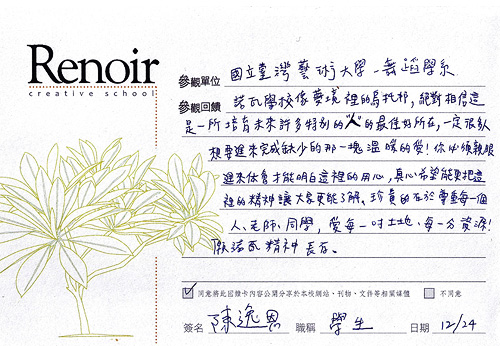 Renoir
creative school
參觀單位 國立臺灣藝術大學-舞蹈學系
參觀回饋 諾瓦學校像夢境裡的烏托邦,絕對相信這
是一所培育未來許多特別的“人”的最佳好所在,一定很多人
想要進來完成缺少的那一塊溫暖的愛!你必須親眼
進來体會才能明白這裡的用心,真心希望能更把這
裡的精神讓大家更能了解、珍貴的在於尊重每一個
人、老師、同學,愛每一吋土地、每一分資源!
諾瓦精神 長存。
同意將此回饋卡內容公開分享於本校網站、刊物、文件等相關媒體 不同意
簽名 陳逸恩 職稱 學生 日期 12/24